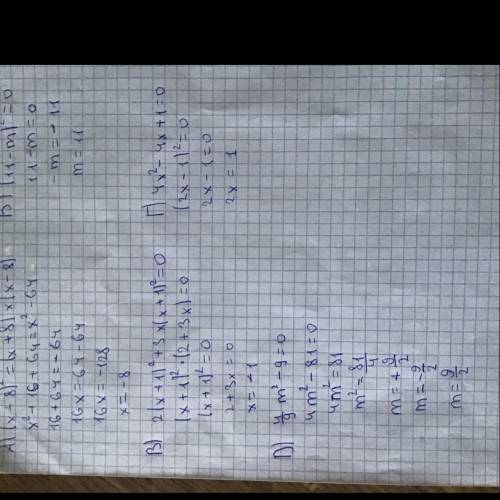 А) (x-8)²=(x+8)×(x-8)
x²+16+64=x²-64
16+64=-64
16x=-64-64
16x=-128
x=-8
Б) (11-m)²=0
11-m=0
-m=-11
m=11
В) 2(x+1)²+3x(x+1)²=0
(x+1)²·(2+3x)=0
(x+1)²=0
2+3x=0
x=-1
Г) 4x²-4x+1=0
(2x-1)²=0
2x-1=0
2x=1
Д) 4/9 m²-9=0
4m²-81=0
4m²=81
m²=81/4
m=±9/2
m=-9/2
m=9/2